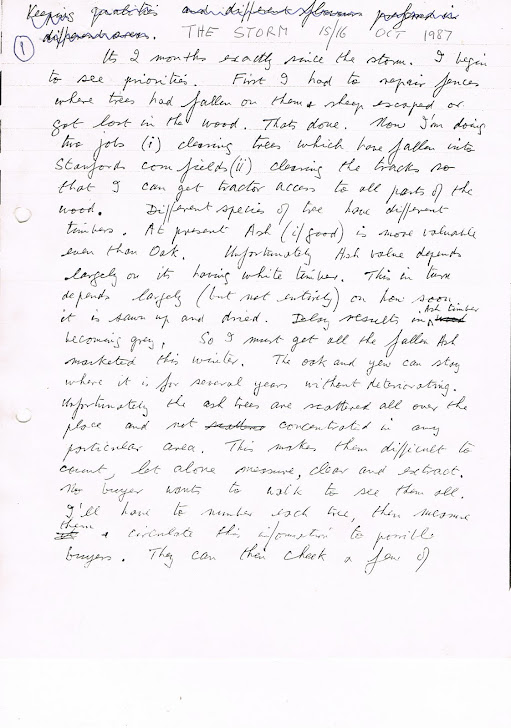 Keeping qualities and different
different THE STORM 15/16 OCT 1987
1
Its 2 months exactly since the storm. I begin
to see priorities. First I had to repair fences
where trees had fallen on them & sheep escaped or
got lost in the wood. Thats done. Now I'm doing
two jobs (i) clearing trees which have fallen into
Stanfords corn fields (ii) clearing the tracks so
that I can get tractor access to all parts of the
wood. Different species of tree have different
timbers. At present Ash (if good) is more valuable
even than Oak. Unfortunately Ash value depends
largely on it having white timber. This in turn
depends largely (but not entirely) on how soon
it is sawn up and dried. Delay results in Ash timber
becoming grey. So I must get all the fallen Ash
marketed this winter. The oak and yew can stay
where it is for several years without deteriorating.
Unfortunately the ash trees are scattered all over the
place and not concentrated in any
particular area. This makes them difficult to
count, let alone measure, clear and extract.
No buyer wants to walk to see them all.
I'll have to number each tree, then measure
them & circulate this information to possible
buyers. They can then check a few of